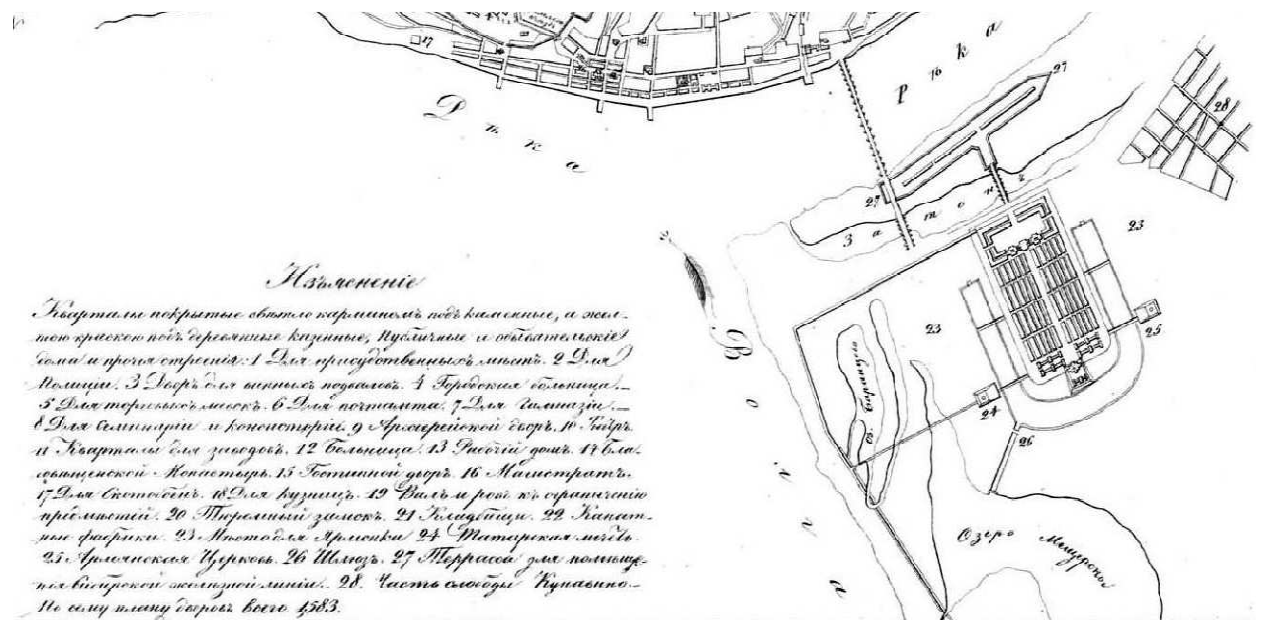 17
Рѣка
Рѣка
27
28
27
Затон
23
Изъмененіе
Кварталы покрытые свѣтло карминомъ подъ каменные, а жел-
тою краскою подъ деревянные казенные, публичные и обывательскіе
дома и прочія строенія: 1 Для присудственныхъ мѣстъ. 2 Для
Полиціи. 3 Дворъ для винныхъ подваловъ. 4 Городская больница.
5 Для торговыхъ лавокъ. 6 Для почтамта. 7 Для Гимназіи.
8 Для Семинаріи и консисторіи. 9 Архіерейской дворъ. 10
11 Кварталы для заводовъ. 12 Больница. 13 Рабочій домъ. 14 Бла-
говѣщенской Монастырь. 15 Гостинной дворъ. 16 Магистратъ.
17 Для Скотобоенъ. 18 Для кузницъ. 19 Валъ и ровъ къ ограниченію
предмѣстій. 20 Тюремный замокъ. 21 Кладбищи. 22 Канат-
ные фабрики. 23 Мѣсто для Ярмонки 24 Татарская мечеть.
25 Армянская Церковь. 26 Шлюзъ. 27 Террасы для помѣще-
нія желѣзной линіи. 28. Часть слободы Кунавино.
По сему плану дворовъ всего 1583.
23
25
24
26
Волга
Озеро Мещерское